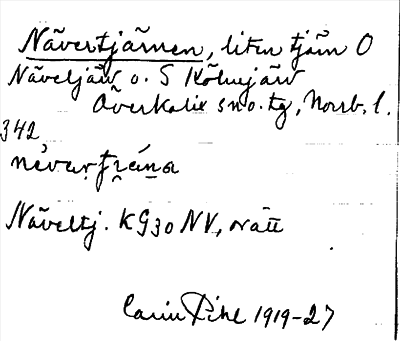 Nävertjärnen, liten tjärn O
Näveljärv o. S Kölmjärv
Överkalix sn o. tg, Norrb. l.
342
Näveltj. KG30 NV, orätt
Carin Pihl 1919-27